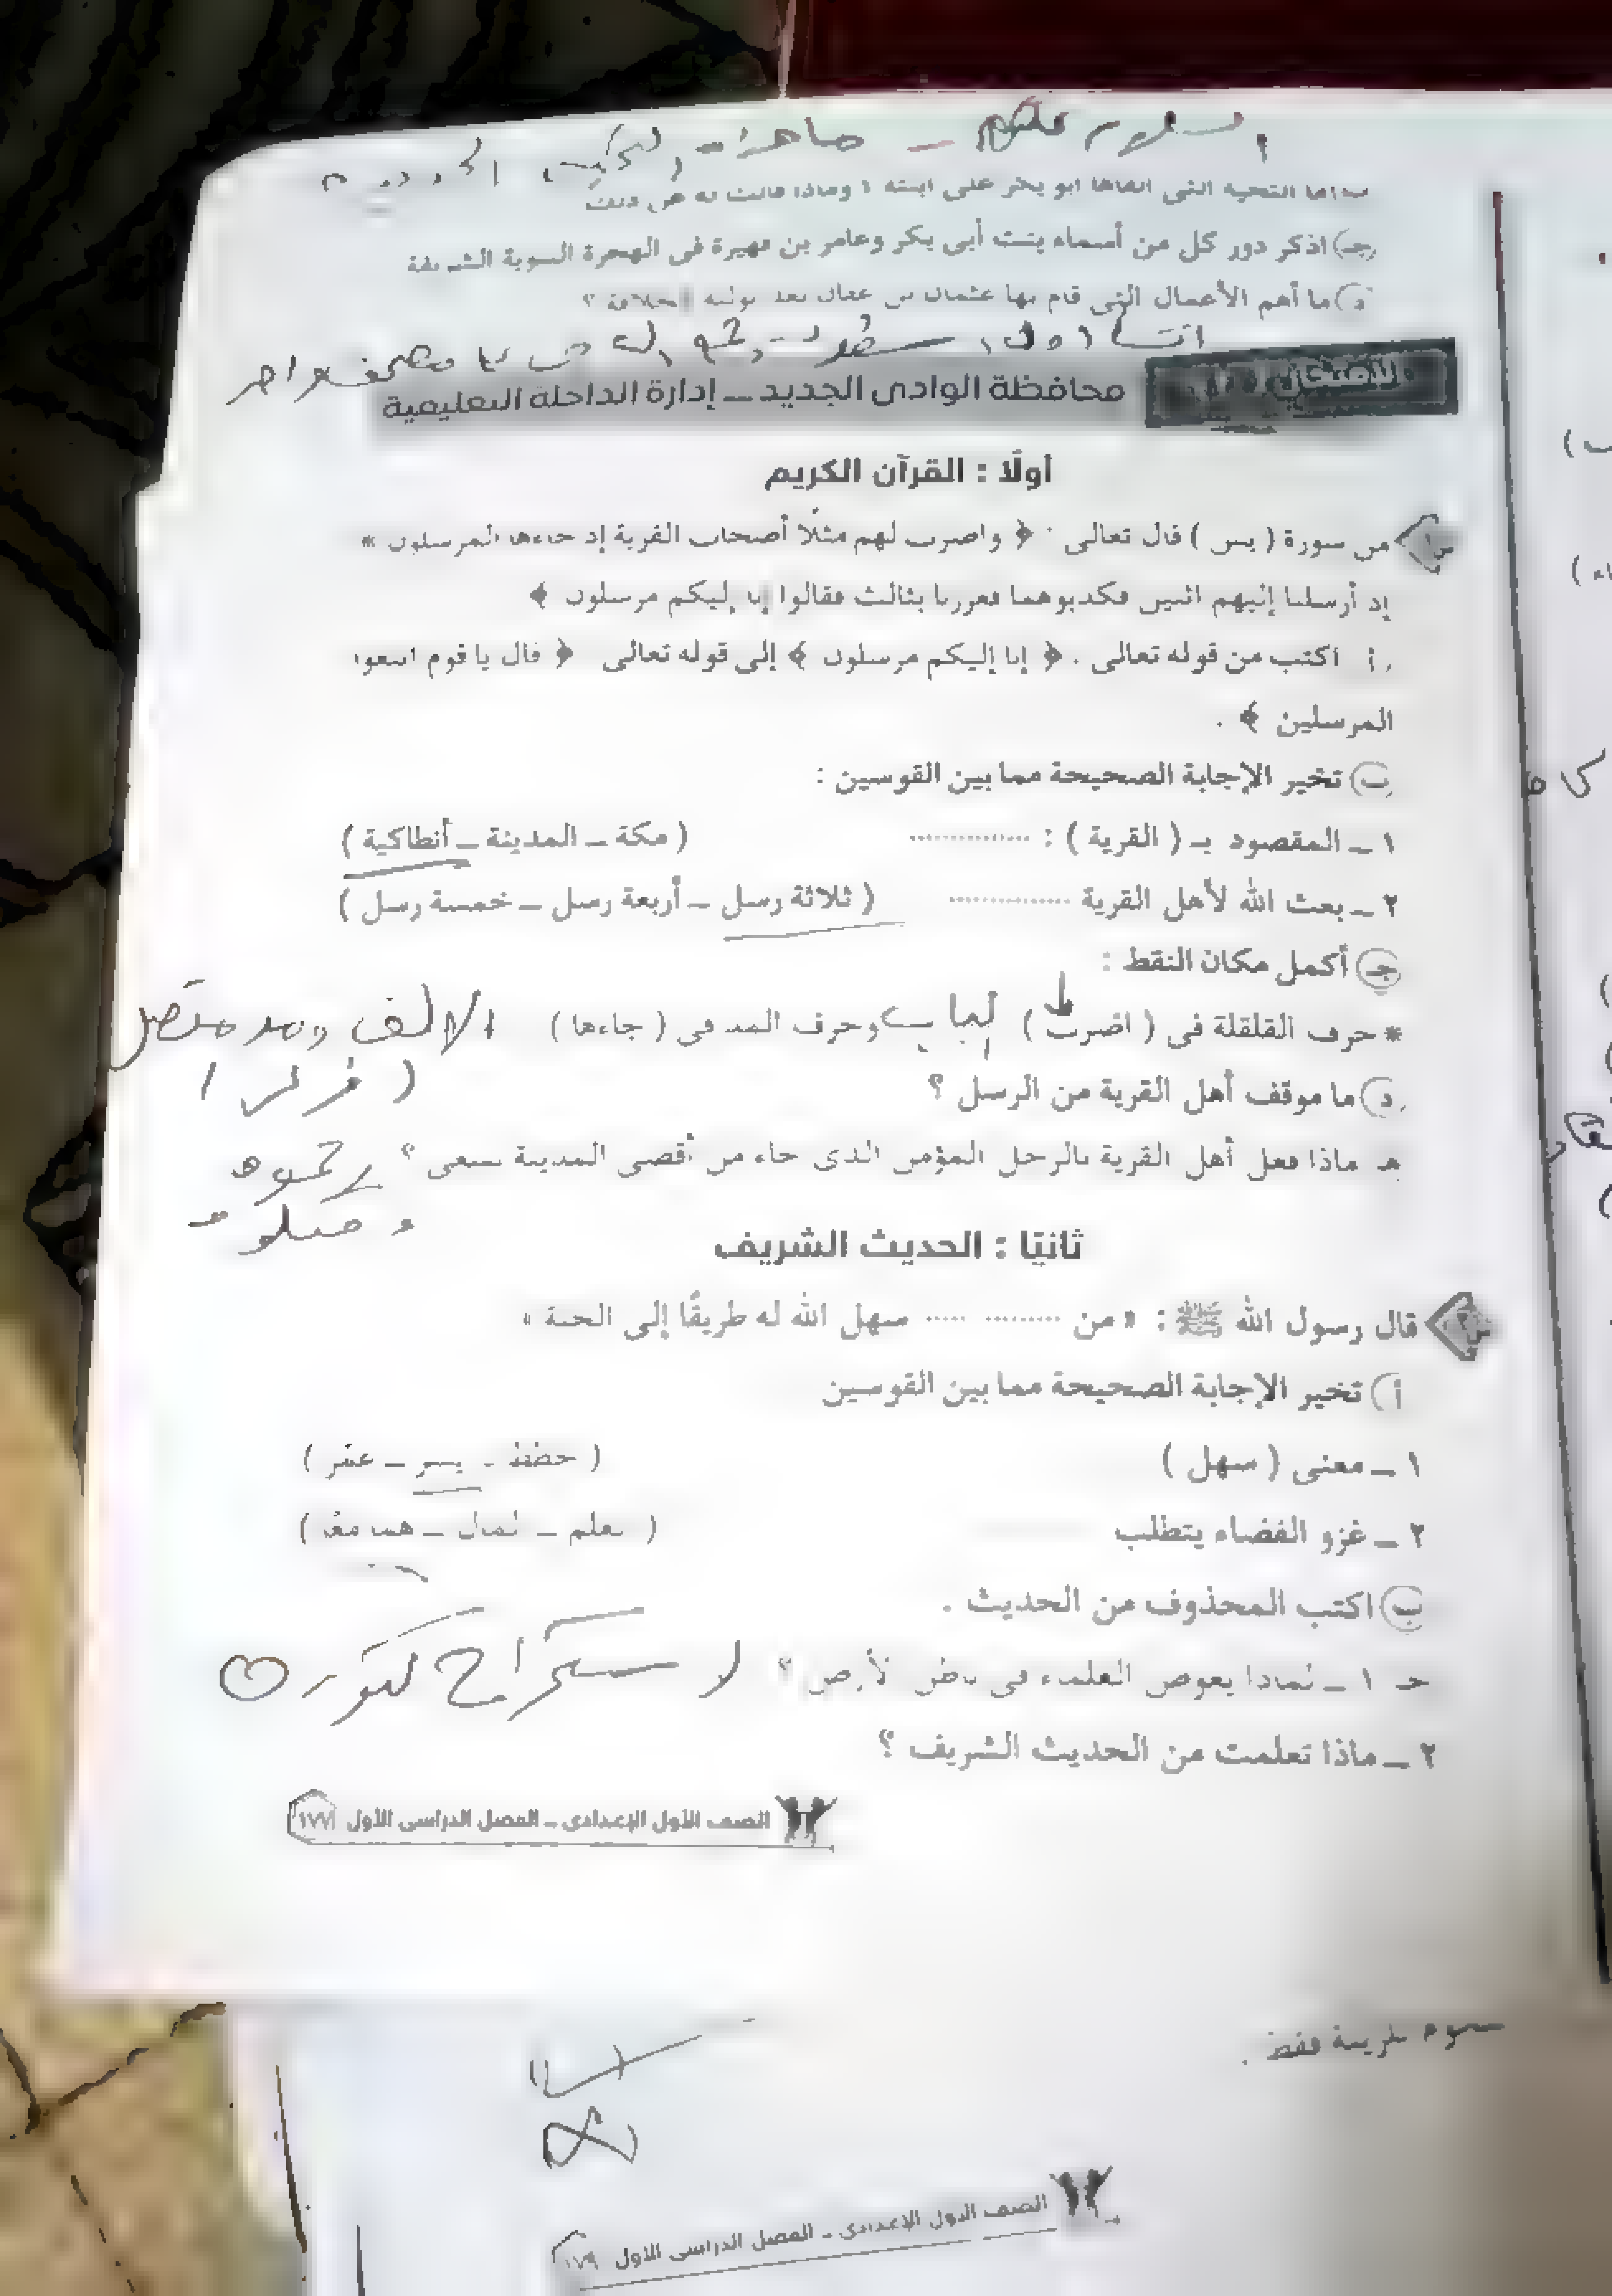 السلام عليكم - ماحز -
ب) ما التحية التى ألقاها أبو بكر على ابنته ؟ وماذا قالت له
جـ) اذكر دور كل من أسماء بنت أبى بكر وعامر بن فهيرة فى الهجرة النبوية الشريفة
د) ما أهم الأعمال التى قام بها عثمان بن عفان بعد توليه الخلافة ؟
انشا اول اسطول
محافظة الوادى الجديد – إدارة الداخلة التعليمية
أولًا : القرآن الكريم
س١ من سورة ( يس ) قال تعالى : ﴿ واضرب لهم مثلًا أصحاب القرية إذ جاءها المرسلون *
إذ أرسلنا إليهم اثنين فكذبوهما فعززنا بثالث فقالوا إنا إليكم مرسلون ﴾
أ اكتب من قوله تعالى : ﴿ إنا إليكم مرسلون ﴾ إلى قوله تعالى ﴿ قال يا قوم اتبعوا
المرسلين ﴾ .
ب) تخير الإجابة الصحيحة مما بين القوسين :
١ – المقصود بـ ( القرية ) : .............. ( مكة – المدينة – أنطاكية )
٢ – بعث الله لأهل القرية .............. ( ثلاثة رسل – أربعة رسل – خمسة رسل )
جـ) أكمل مكان النقط :
* حرف القلقلة فى ( اضرب ) الباب وحرف المد فى ( جاءها ) الالف ومد متصل
د) ما موقف أهل القرية من الرسل ؟
هـ ماذا فعل أهل القرية بالرجل المؤمن الذى جاء من أقصى المدينة يسعى ؟ رجموه
وقتلوه
ثانيًا : الحديث الشريف
س٢ قال رسول الله ﷺ : « من ......... ..... سهل الله له طريقًا إلى الجنة »
أ) تخير الإجابة الصحيحة مما بين القوسين
١ – معنى ( سهل ) ( حفظ – يسر – عسر )
٢ – غزو الفضاء يتطلب ( تعلم – المال – هما معًا )
ب) اكتب المحذوف من الحديث .
جـ ١ – لماذا يغوص العلماء فى باطن الأرض ؟ لاستخراج كنوز
٢ – ماذا تعلمت من الحديث الشريف ؟
الصف الأول الإعدادى – الفصل الدراسى الأول ١٧٧
فقط .
الصف الأول الإعدادى – الفصل الدراسى الأول ١٧٩